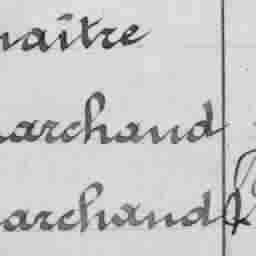 naître
archand
archand